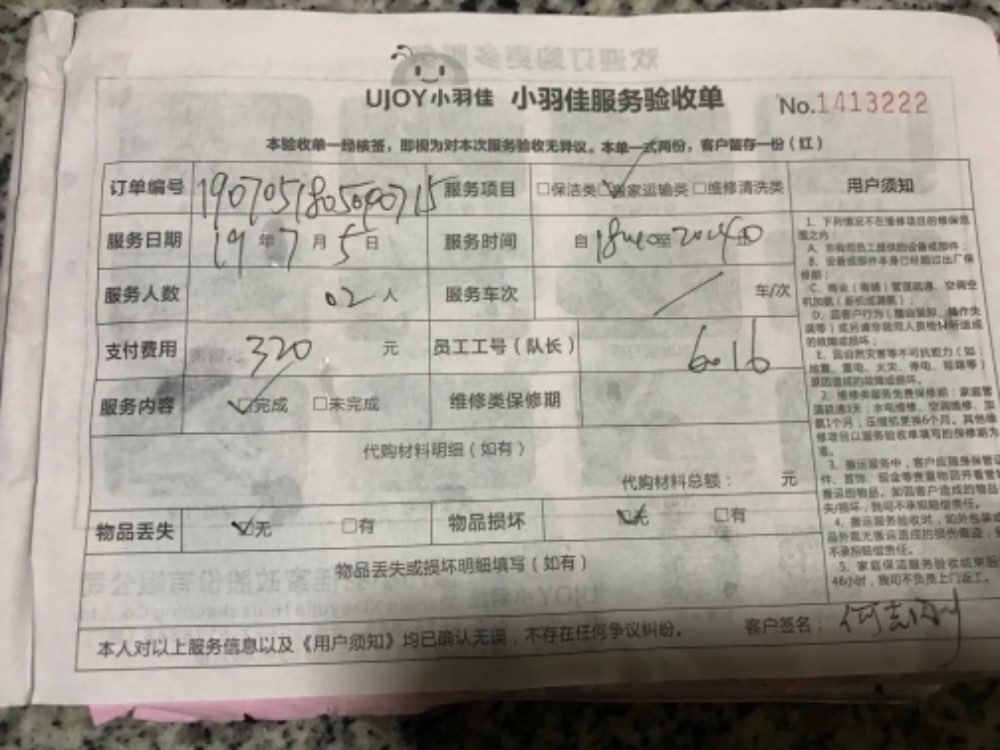 UJOY小羽佳 小羽佳服务验收单 No.1413222
本验收单一经核签，即视为对本次服务验收无异议。本单一式两份，客户留存一份（红）
订单编号 服务项目 □保洁类 居家运输类 □维修清洗类 用户须知
服务日期 19年7月5日 服务时间 自 至
服务人数 02人 服务车次 车/次
支付费用 320 元 员工工号（队长） 6016
服务内容 ☑完成 □未完成 维修类保修期
代购材料明细（如有）
代购材料总额： 元
物品丢失 ☑无 □有 物品损坏 ☑无 □有
物品丢失或损坏明细填写（如有）
本人对以上服务信息以及《用户须知》均已确认无误，不存在任何争议纠纷。 客户签名：
1、下列情况不在维修项目的维保范
围之内：
A、非我司员工提供的设备或部件；
B、设备或部件本身已经超过出厂保
修期；
C、商业（商铺）管道疏通、空调空
机加氨（新机或漏氨）；
D、因客户行为（擅自装卸、操作失
误等）或另请非我司人员检修所造成
的故障或损坏；
E、因自然灾害等不可抗力（如：
地震、雷电、火灾、停电、短路等）
原因造成的故障或损坏。
2、维修类服务免费保修期：家庭管
道疏通3天；水电维修、空调维修、加
氨1个月；压缩机更换6个月。其他维
修项目以服务验收单填写的保修期为
准。
3、搬运服务中，客户应随身保管证
件、首饰、现金等贵重物品并看管
搬运的物品。如因客户造成的物品
失/损坏，我司不承担赔偿责任。
4、搬运服务验收时，如外包装
品外观无搬运造成的损伤痕迹，
不承担赔偿责任。
5、家庭保洁服务验收结束超
48小时，我司不负责上门返工。